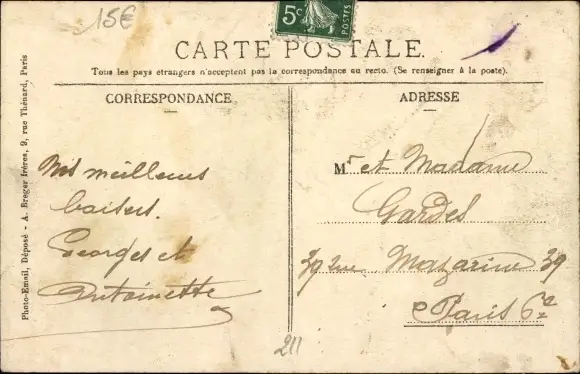 15€
5c
CARTE POSTALE.
Tous les pays étrangers n'acceptent pas la correspondance au recto. (Se renseigner à la poste).
CORRESPONDANCE
Nos meilleurs
baisers.
Georges et
Antoinette
ADRESSE
Mr et Madame
Gardes
39 rue Mazarine 39
Paris 6e
211
Photo-Email, Déposé - A. Breger frères, 9, rue Thénard, Paris